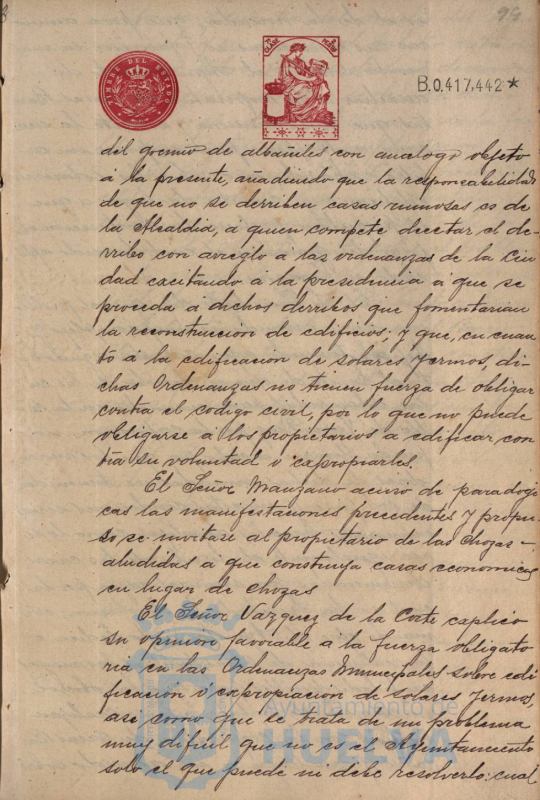 94
TIMBRE DEL ESTADO
CLASE
B.0.417.442 *
del gremio de albañiles con analogo objeto
á la presente, añadiendo que la responsabilidad
de que no se derriben casas ruinosas es de
la Alcaldia, á quien compete decretar el de-
rribo con arreglo á las ordenanzas de la Ciu
dad excitando á la presidencia á que se
proceda á dichos derribos que fomentarian
la reconstrucción de edificios; y que, en cuan
to á la edificación de solares yermos, di-
chas Ordenanzas no tienen fuerza de obligar
contra el codigo civil, por lo que no puede
obligarse á los propietarios a edificar con
tra su voluntad ó expropiarles.
El Señor Manzano acusó de paradogi
cas las manifestaciones precedentes y propu-
so se invitase al propietario de las chozas -
aludidas á que construya casas economicas
en lugar de chozas
El Señor Vazquez de la Corte explicó
su opinion favorable á la fuerza obligato
ria en las Ordenanzas Municipales sobre edi
ficación ó expropiación de solares yermos,
asi como que se trata de un problema
muy dificil que no es el Ayuntamiento
solo el que puede ni debe resolverlo: cual
Ayuntamiento de
HUELVA